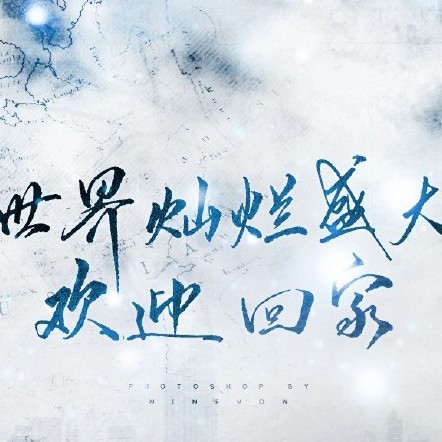 世界灿烂盛大
欢迎回家
PHOTOSHOP BY
NINEVON